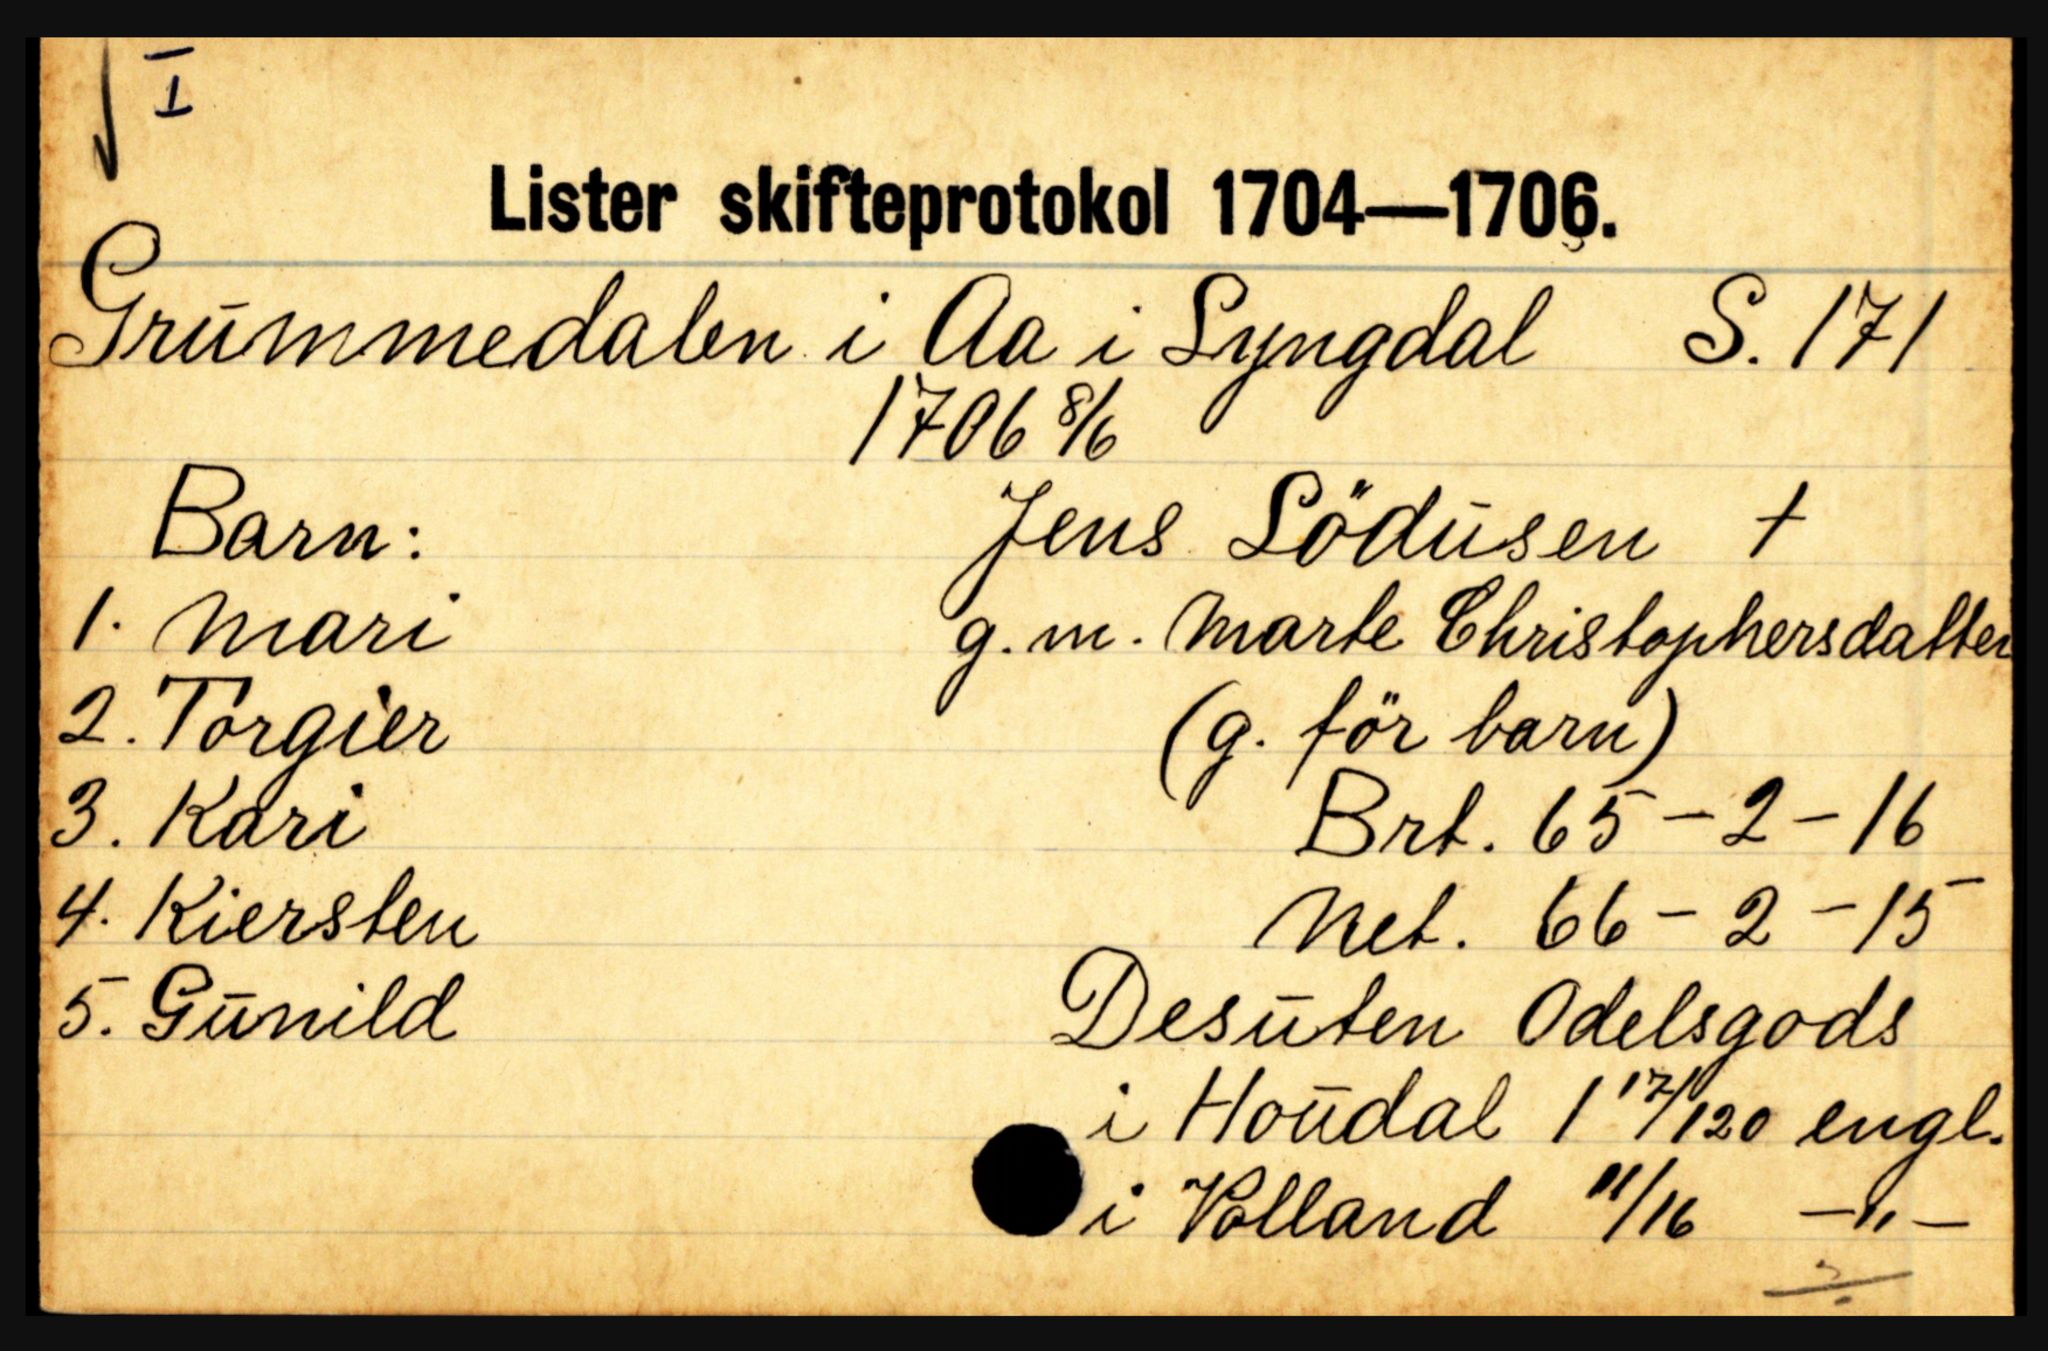 I
Lister skifteprotokol 1704—1706.
Grummedalen i Aa i Lyngdal S. 171
1706 8/6
Barn: Jens Lödusen †
1. Mari g. m. Marte Christophersdatter
2. Torgier (g. för barn)
3. Kari Brt. 65 - 2 - 16
4. Kiersten Net. 66 - 2 - 15
5. Gunild Desuten Odelsgods
i Houdal 1 17/120 engl.
i Volland 11/16 —"—